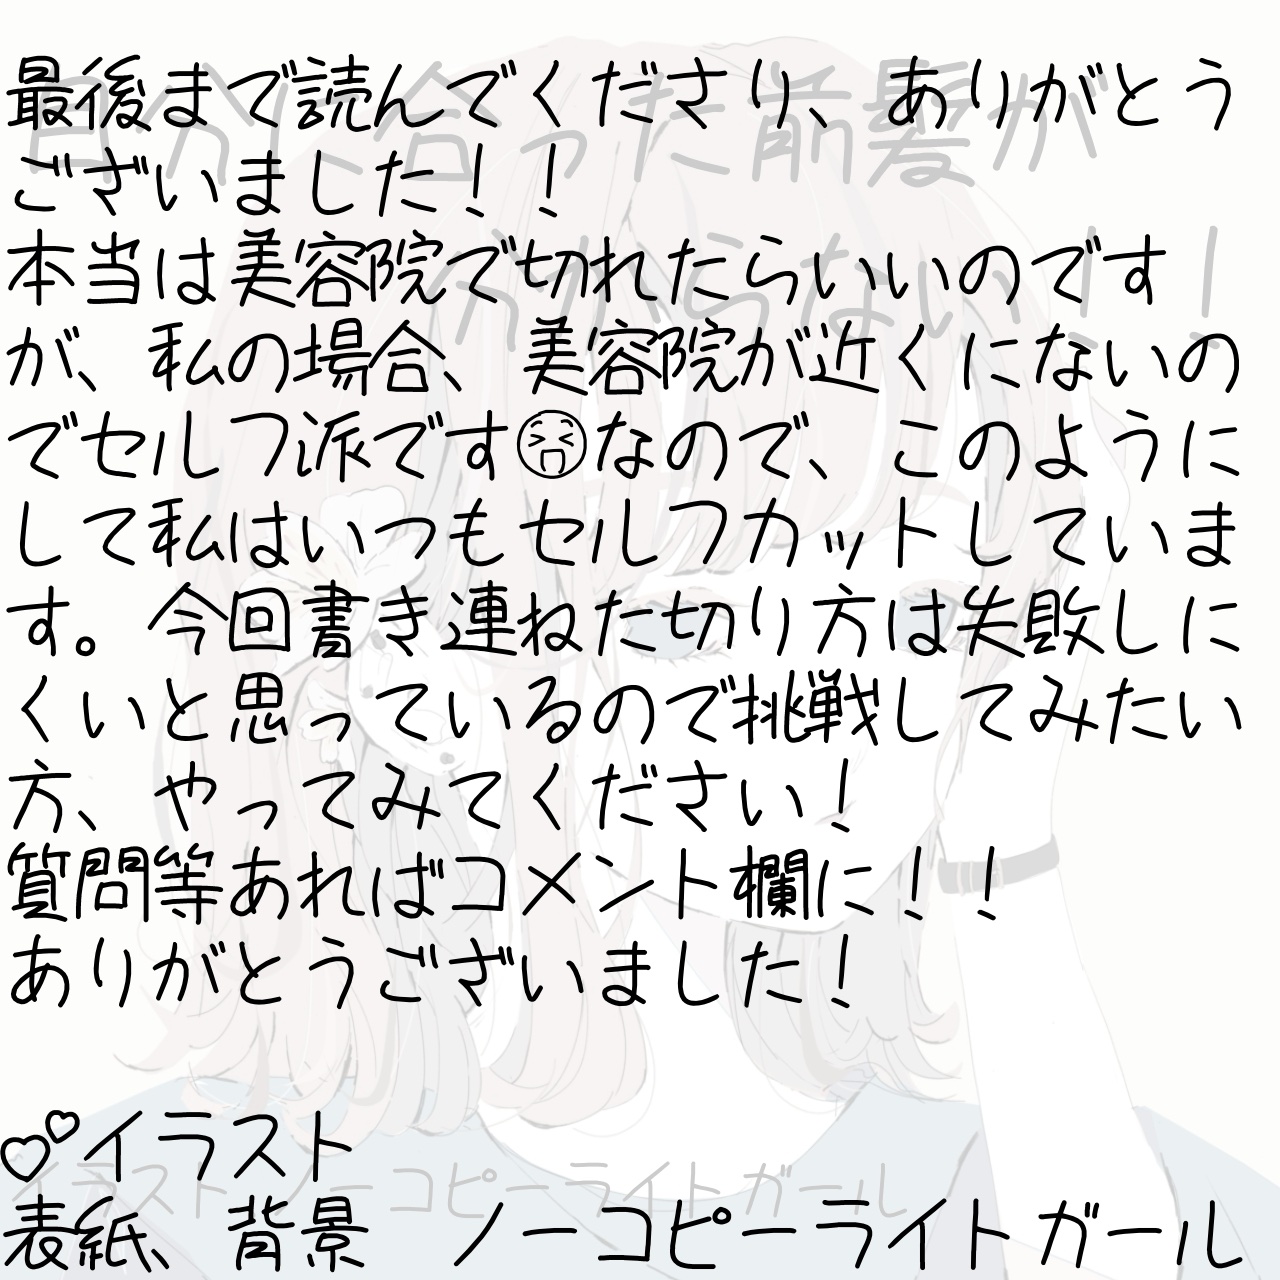 最後まで読んでくださり、ありがとう
ございました！！
本当は美容院で切れたらいいのです
が、私の場合、美容院が近くにないの
でセルフ派です😫なので、このように
して私はいつもセルフカットしていま
す。今回書き連ねた切り方は失敗しに
くいと思っているので挑戦してみたい
方、やってみてください！
質問等あればコメント欄に！！
ありがとうございました！
💕イラスト
表紙、背景　ノーコピーライトガール
自分に合った前髪が
分からない！！
イラスト ノーコピーライトガール